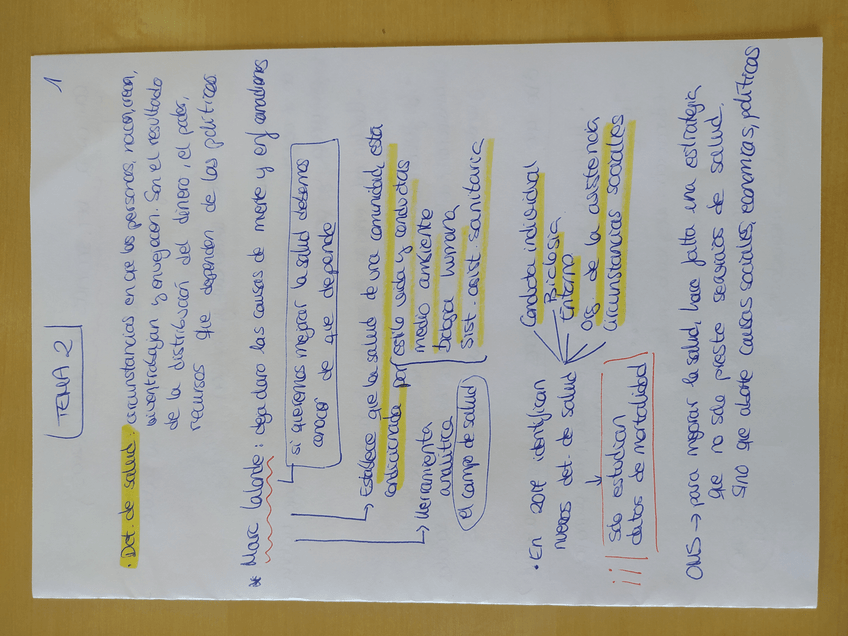 1
TEMA 2
• Det. de salud: circunstancias en que las personas, nacen, crecen,
viven trabajan y envejecen. Son el resultado
de la distribución del dinero, el poder,
recursos que dependen de las políticas.
* Marc Lalonde: deja claro las causas de muerte y enf canadienses
si queremos mejorar la salud debemos
conocer de que depende
→ Establece que la salud de una comunidad, esta
condicionada por estilo vida y conductas
medio ambiente
biología humana
sist. asist. sanitaria
→ Herramienta
analítica
el campo de salud
• En 2014 identifican
nuevos det. de salud
Conducta individual
Biología
Entorno
Org. de la asistencia
circunstancias sociales
¡¡¡ Sólo estudian
datos de mortalidad
OMS → para mejorar la salud, hace falta una estrategia
que no sólo preste servicios de salud.
sino que aborte causas sociales, económicas, políticas